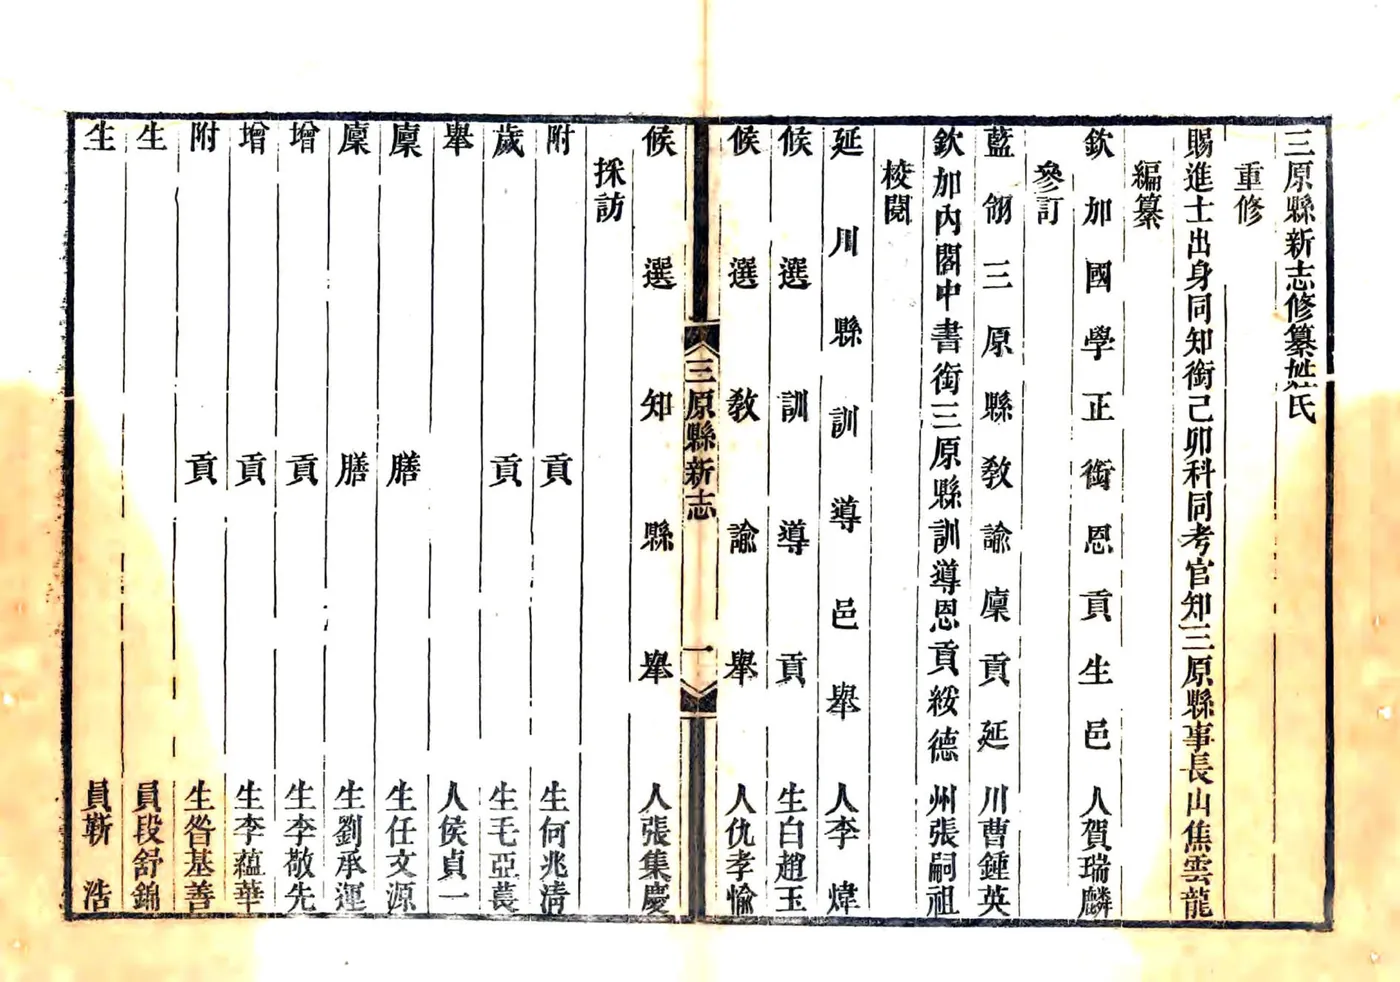 三原縣新志修纂姓氏
重修
賜進士出身同知銜己卯科同考官知三原縣事長山焦雲龍
編纂
欽加國學正銜恩貢生邑人賀瑞麟
參訂
藍翎三原縣教諭廩貢延川曹鍾英
欽加內閣中書銜三原縣訓導恩貢綏德州張嗣祖
校閱
延川縣訓導邑舉人李煒
候選訓導貢生白趙玉
候選教諭舉人仇孝愉
三原縣新志 一
候選知縣舉人張集慶
採訪
附貢生何兆清
歲貢生毛亞萇
舉人侯貞一
廩膳生任文源
廩膳生劉承運
增貢生李敬先
增貢生李蘊華
附貢生昝基善
生員段舒錦
生員靳浩